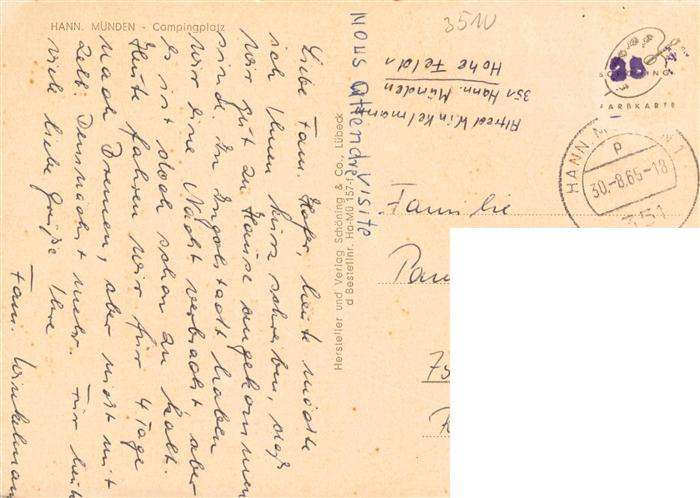 HANN. MÜNDEN - Campingplatz
Liebe Fam. Hofer, heute möchte
ich Ihnen kurz schreiben, daß
wir gut zu Hause angekommen
sind. In Ingolstadt haben
wir eine Nacht verbracht aber
es ist doch schon zu kalt.
Heute fahren wir für 4 Tage
nach Bremen, aber nicht mit
Zelt. Demnächst mehr. Für heute
viele liebe Grüße Ihre
Fam. Winkelmann
Hersteller und Verlag Schöning & Co., Lübeck
Bestellnr. Ha-Mü 157
Nous attendre visite
3510
Alfred Winkelmann
351 Hann. Münden
Hohe Feld 1
SCHÖNING
FARBKARTE
HANN. M
30.-8.65-18
351
Familie